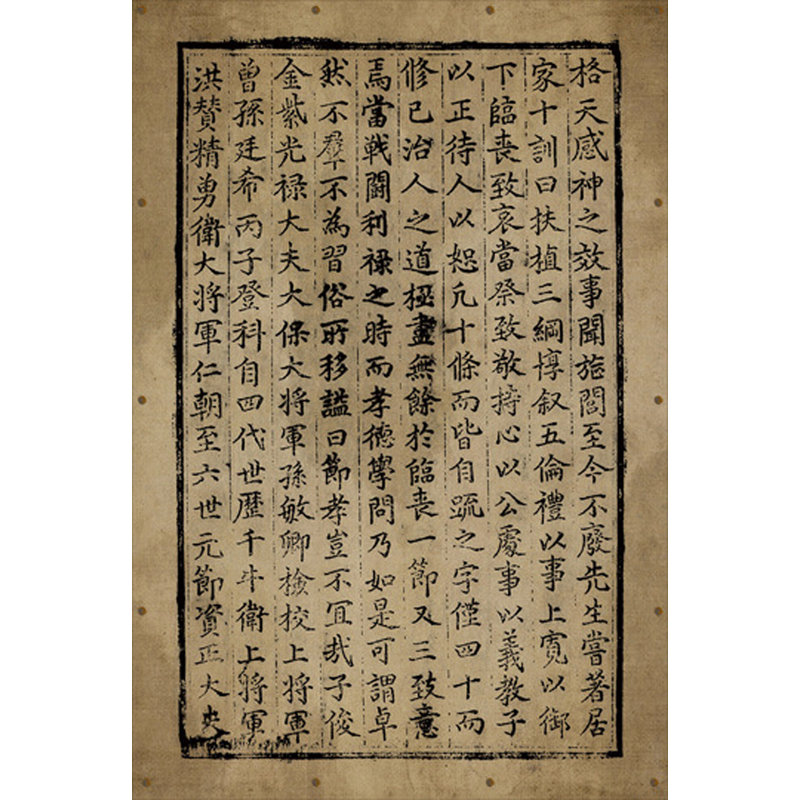 格天感神之效事聞旌閭至今不廢先生嘗著居
家十訓曰扶植三綱惇叙五倫禮以事上寬以御
下臨喪致哀當祭致敬持心以公處事以義教子
以正待人以恕凡十條而皆自䟽之字僅四十而
修已治人之道極盡無餘於臨喪一節又三致意
焉當戦鬪利祿之時而孝德學問乃如是可謂卓
然不羣不為習俗所移諡曰節孝豈不冝哉子俊
金紫光祿大夫大保大將軍孫敏卿檢校上將軍
曾孫廷希丙子登科自四代世歷千牛衛上將軍
洪賛精勇衛大將軍仁朝至六世元節資正大夫